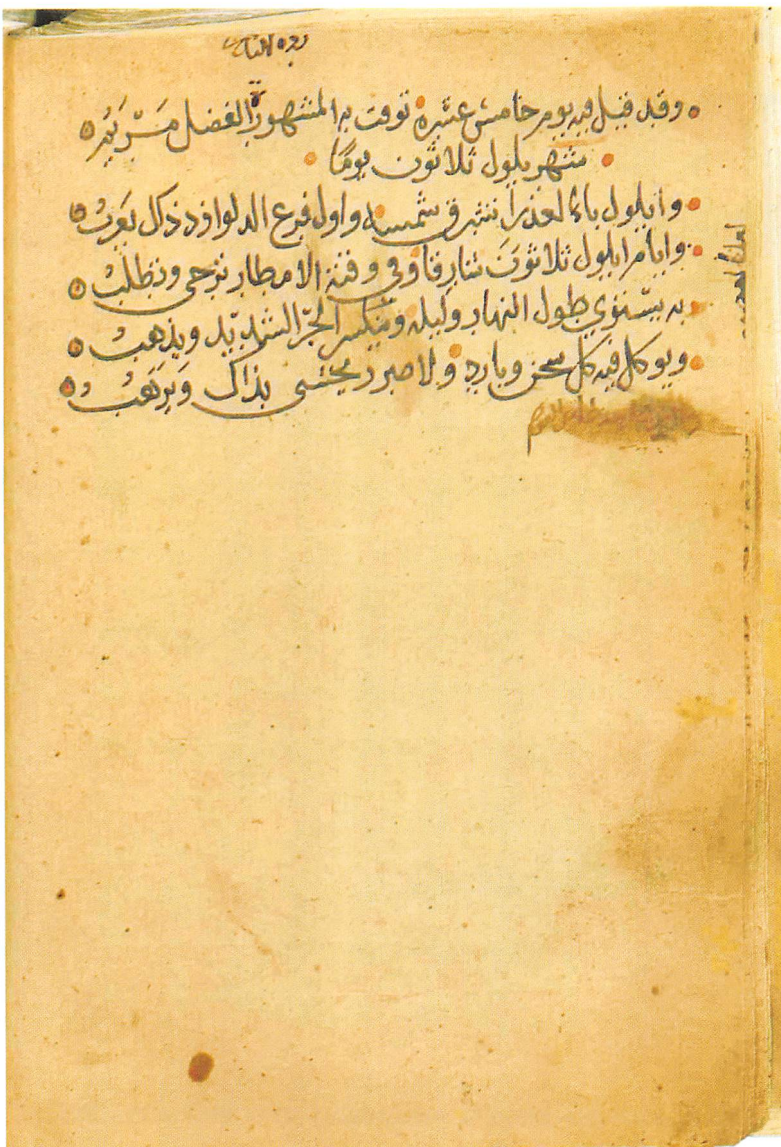 وقد قيل فيه يوم خامس عشره توفت به المشهورة الفضل مريم
شهر يلول ثلاثون يومًا
وايلول بالعذرا تشرق شمسه واول فرع الدلو اذ ذاك يغرب
وايام ايلول ثلاثون وفي وقته الامطار ترجى وتطلب
به يستوي طول النهار وليله وينكسر الحرّ الشديد ويذهب
ويوكل فيه كل سخن وبارد ولا ضرر يخشى بذاك ويرهب